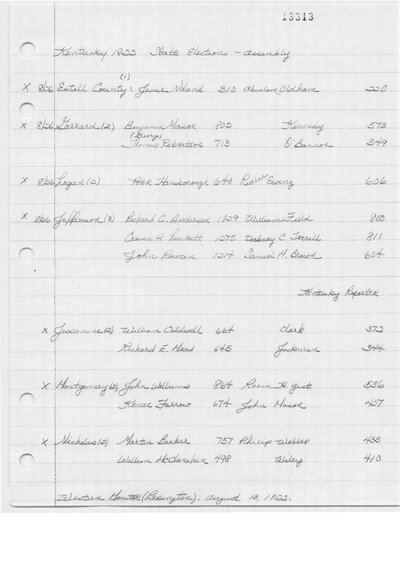 13313
Kentucky 1822 State Elections - Assembly
(1)
X 8/26 Estill County: Jesse Noland 310 Absalom Oldham 220
X 8/26 Garrard (2) Benjamin Mason 802 Kennedy 573
(George)
Thomas Robertson 713 O'Bannon 349
X 8/26 Logan (2) Peter Hansborough 640 Ewing 606
X 8/26 Jefferson (3) Richard C. Anderson 1829 William Field 860
Craven P. Luckett 1275 Dabney C. Terrill 811
John Rowan 1214 Samuel M. Brown 604
Kentucky Reporter
X Jessamine (2) William Caldwell 664 Clark 372
Richard E. Mead 645 Jackman 344
X Montgomery (2) John Williams 864 H. Gist 556
Kenaz Farrow 674 John Mason 427
X Nicholas (2) Martin Barker 757 Philip Webber 435
William McClanahan 498 Wiley 410
Western Monitor (Lexington). August 13, 1822.